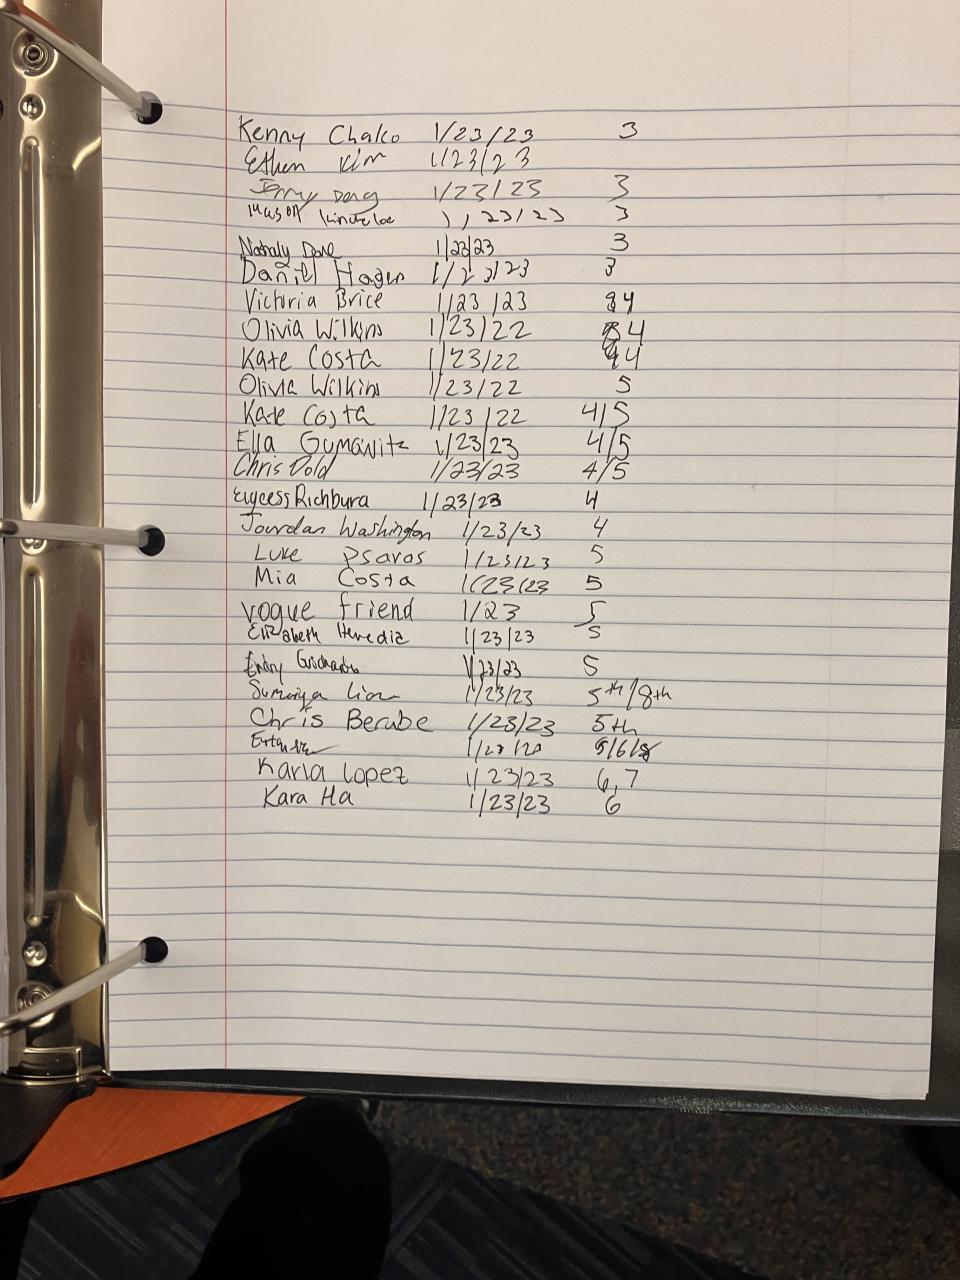 Kenny Chalco 1/23/23 3
Ethan Kim 1/23/23
Jerry Dang 1/23/23 3
Mason 1/23/23 3
Nataly 1/23/23 3
Daniel Hagen 1/23/23 3
Victoria Brice 1/23/23 4
Olivia Wilkins 1/23/22 4
Kate Costa 1/23/22 4
Olivia Wilkins 1/23/22 5
Kate Costa 1/23/22 4/5
Ella 1/23/23 4/5
Chris Dold 1/23/23 4/5
Richbura 1/23/23 4
Jourdan Washington 1/23/23 4
Luke Psaras 1/23/23 5
Mia Costa 1/23/23 5
vogue friend 1/23 5
Elizabeth Heredia 1/23/23 5
1/23/23 5
1/23/23 5th/8th
Chris Berube 1/23/23 5th
Karla Lopez 1/23/23 6,7
Kara Ha 1/23/23 6